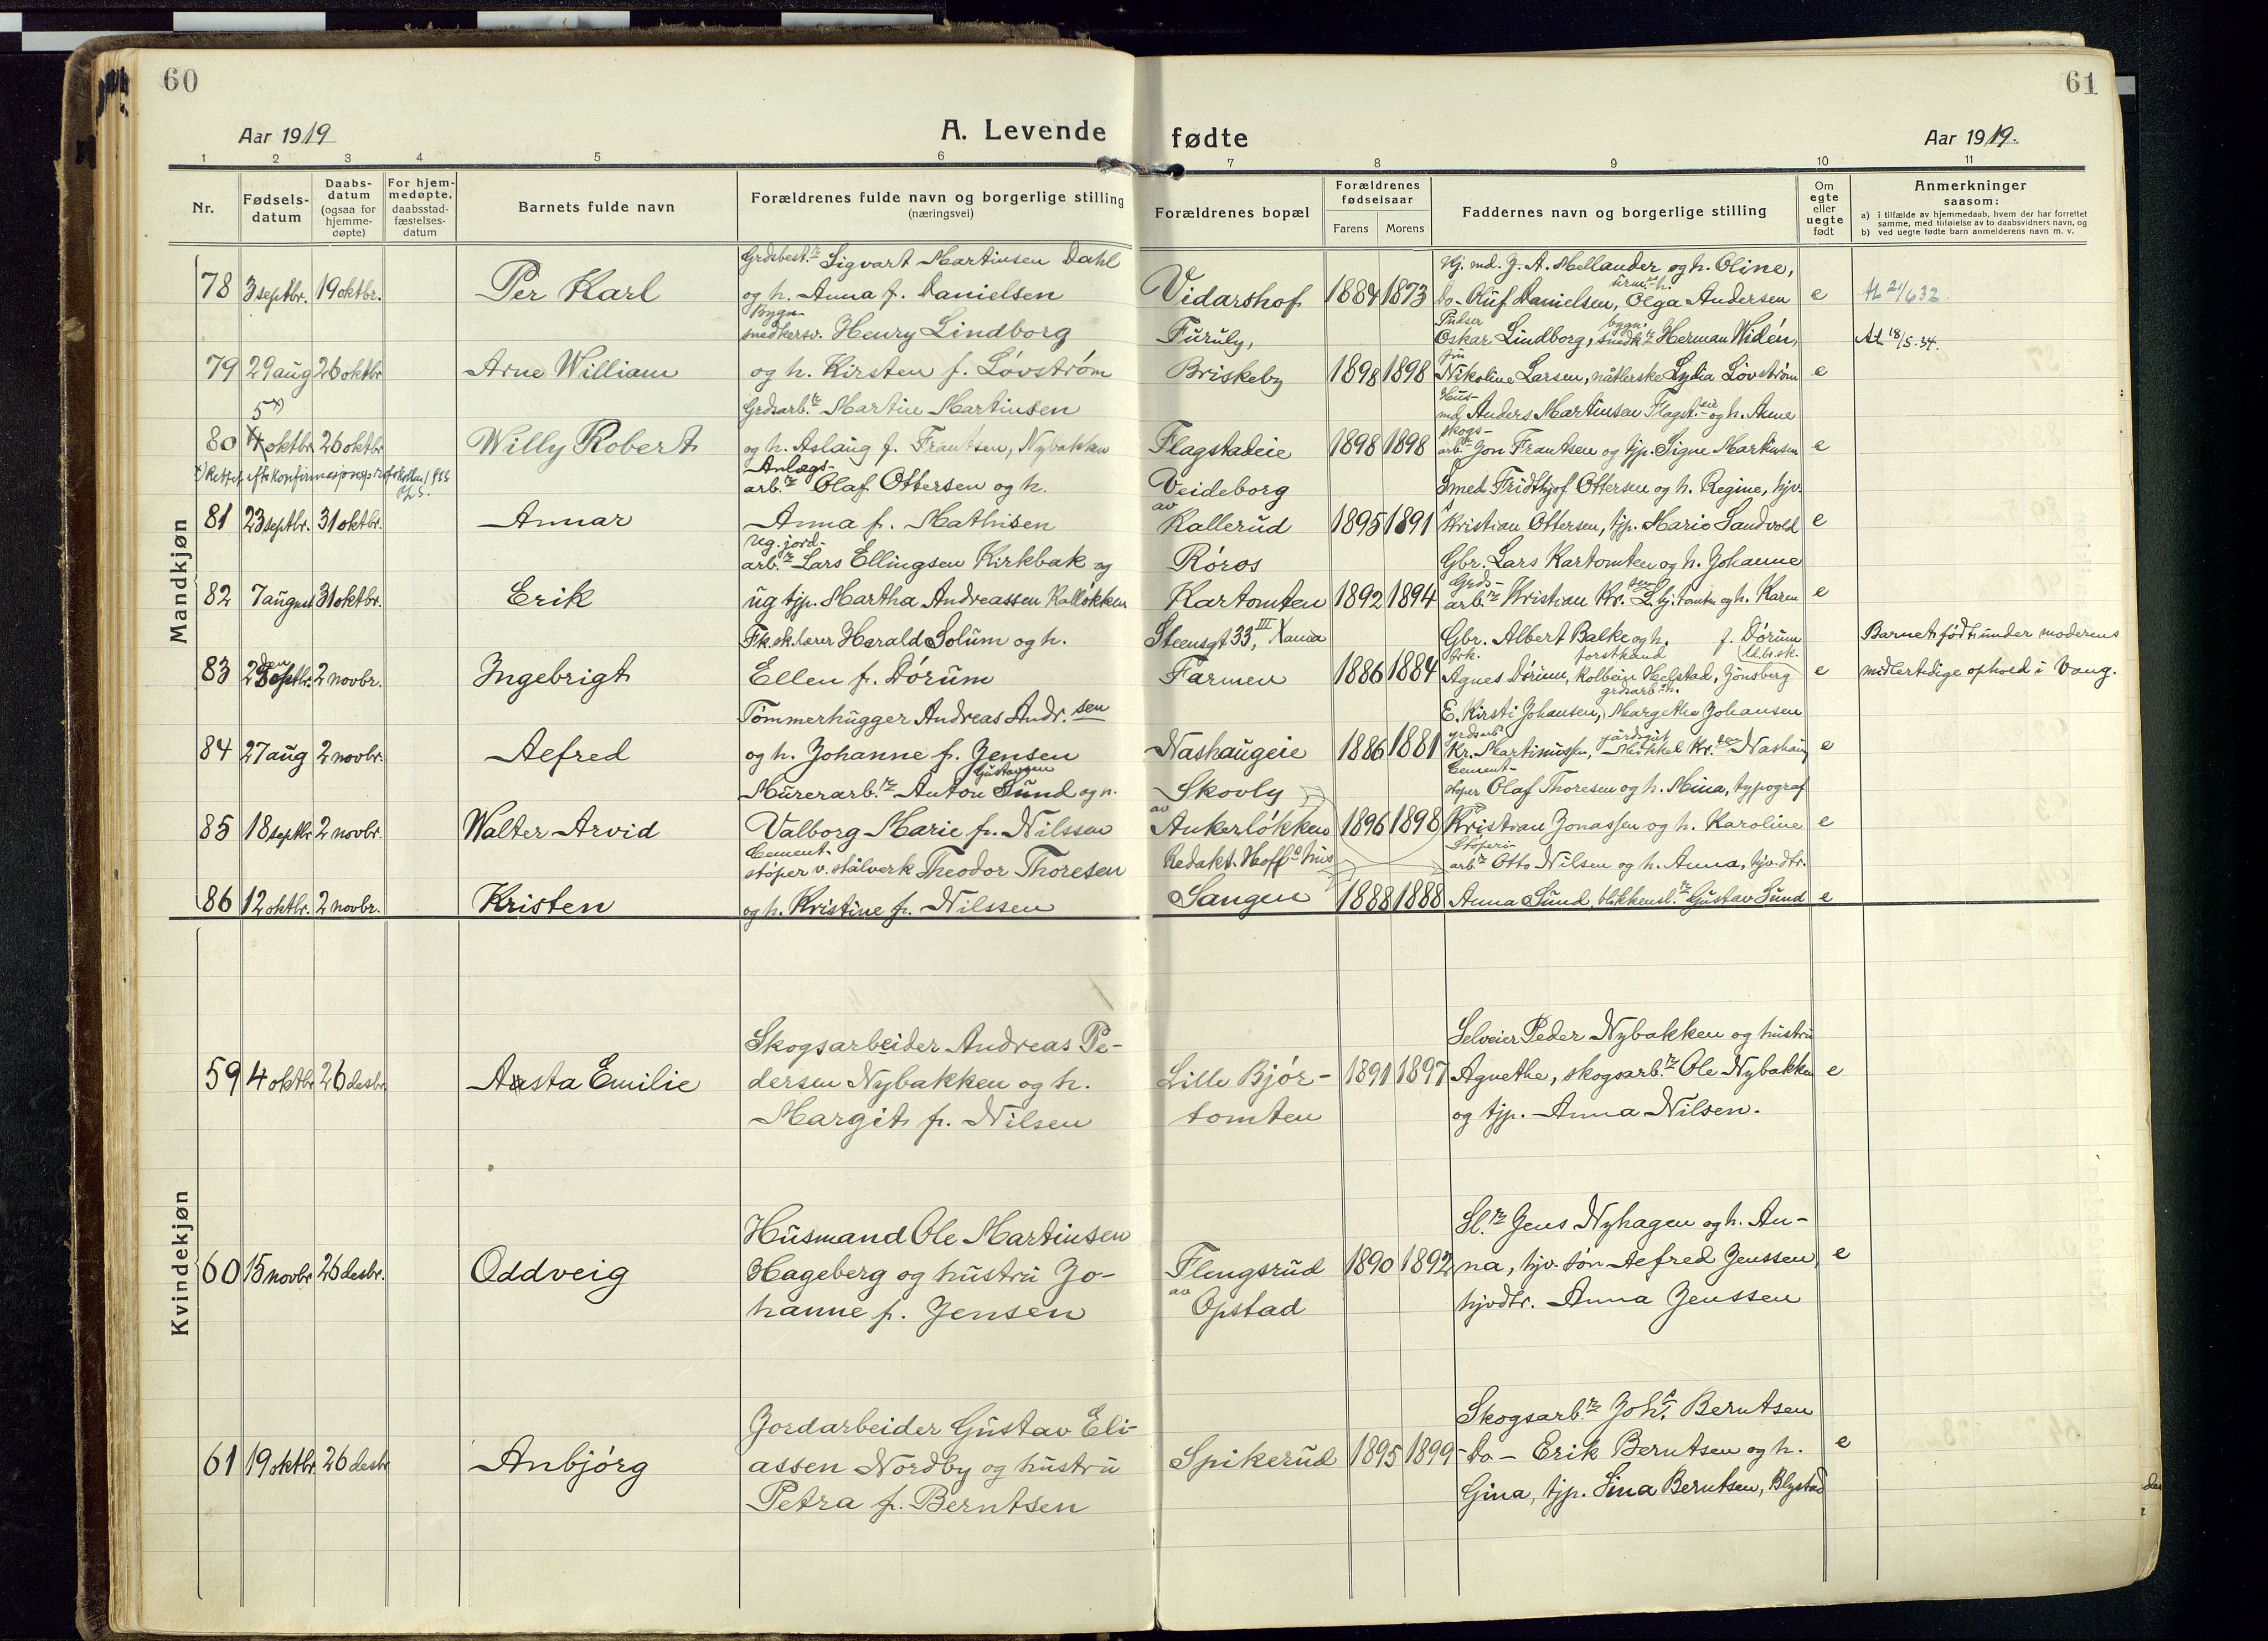 60
61
Aar 1919
A. Levende fødte
Aar 1919.
1 2 3 4 5 6 7 8 9 10 11
Nr.
Fødsels-
datum
Daabs-
datum
(ogsaa for
hjemme-
døpte)
For hjem-
medøpte,
daabsstad-
fæstelses-
datum
Barnets fulde navn
Forældrenes fulde navn og borgerlige stilling
(næringsvei)
Forældrenes bopæl
Forældrenes
fødselsaar
Farens Morens
Faddernes navn og borgerlige stilling
Om
egte
eller
uegte
født
Anmerkninger
saasom:
a) i tilfælde av hjemmedaab, hvem der har forrettet
samme, med tilføielse av to daabsvidners navn, og
b) ved uegte fødte barn anmelderens navn m. v.
Mandkjøn
78 3 septbr. 19 oktbr. Per Karl
Grdsbest.r Sigvart Martinsen Dahl
og h. Anna f. Danielsen
Vidarshof 1884 1873
Hj. md. J. A. Mellander og h. Oline,
Do- Oluf Danielsen, Olga Andersen e
21/6 32.
79 29 aug 26 oktbr Arne William
Bygn.
snedkersv. Henry Lindborg
og h. Kirsten f. Lövström
Furuly,
Briskeby 1898 1898
Pudser bygn.
Oskar Lindborg, snedk.r Herman Widén,
Nikoline Larsen, nåtlerske Lydia Lövström e
18/5.34.
80 5x) oktbr 26 oktbr Willy Robert
Grdsarb.r Martin Martinsen
og h. Aslaug f. Frantsen, Nybakken
Flagstadeie 1898 1898
Hus-
md, Anders Martinsen Flagst.eie og h. Anne
skogs-
arb.r Jon Frantsen og tjp. Signe Martinsen e
x) Rettet efter konfirmasjonsprotokollen 1933
81 23 septbr. 31 oktbr. Annar
Anlægs-
arb.r Olaf Ottersen og h.
Anna f. Mathisen
Veideborg
av
Kallerud 1895 1891
Smed Fridthjof Ottersen og h. Regine, hjv.
Kristian Ottersen, tjp. Marie Sandvold e
82 7 august 31 oktbr. Erik
Ug. jord-
arb.r Lars Ellingsen Kirkbak og
ug tjp. Martha Andreassen Kalløkken
Röros
Kartomten 1892 1894
Gbr. Lars Kartomten og h. Johanne
Grds-
arb.r Kristian Kr.sen L.bj.tomten og h. Karen e
83 2den septbr. 2 novbr. Ingebrigt
Fk.sk.lærer Harald Solum og h.
Ellen f. Dörum
Steensgt 33, III Xania
Farmen 1886 1884
Gbr. Albert Balke og h. f. Dörum
frk. forstkand
Agnes Dörum, Kolbein Helstad, Jönsberg e
Barnet födt under moderens
midlertidige ophold i Vang.
84 27 aug 2 novbr. Aefred
Tömmerhugger Andreas Andr.sen
og h. Johanne f. Jensen
Nashaugeie 1886 1881
grdsarb. h.
E. Kirsti Johansen, Margethe Johansen
grdsarb.r gårdsgut
Kr. Martinussen, Mikkel Kr.sen Nashaug e
85 18 septbr 2 novbr. Walter Arvid
Gustavsen
Murerarb.r Anton Sund og h.
Valborg Marie f. Nilssen
Skovly
av
Ankerløkken 1896 1898
Cement-
støper Olaf Thoresen og h. Mina, typograf
Kristian Jonassen og h. Karoline e
86 12 oktbr. 2 novbr. Kristen
Cement-
støper v. stålverk Theodor Thoresen
og h. Kristine f. Nilssen
Redakt. Hoffs hus
Sangen 1888 1888
Støperi-
arb.r Otto Nilsen og h. Anna, hjv. dtr.
Anna Sund, blikkensl.r Gustav Sund e
Kvindekjøn
59 4 oktbr 26 desbr. Aasta Emilie
Skogsarbeider Andreas Pe-
dersen Nybakken og h.
Margit f. Nilsen
Lille Björ-
tomten
1891 1897
Selveier Peder Nybakken og hustru
Agnethe, skogsarb.r Ole Nybakken e
og tjp. Anna Nilsen.
60 15 novbr 26 desbr. Oddveig
Husmand Ole Martinsen
Hageberg og hustru Jo-
hanne f. Jensen
Flengsrud
av
Opstad
1890 1892
Sl.r Jens Nyhagen og h. An-
na, hjv. sön Aefred Jenssen, e
hjvdtr. Anna Jenssen
61 19 oktbr. 26 desbr Anbjörg
Jordarbeider Gustav Eli-
assen Nordby og hustru
Petra f. Berntsen
Spikerud 1895 1899
Skogsarb.r Joh.s Berntsen
-Do- Erik Berntsen og h. e
Gina, tjp. Lina Berntsen, Blystad